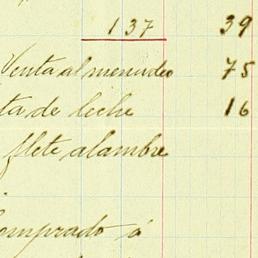 137 39
Venta al menudeo 75
ta de leche 16
flete alambre
Comprado á